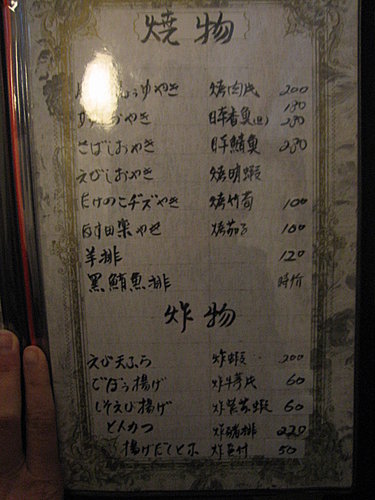 燒物
うゆやき 烤肉片 200
おやき 日本香魚 180 230
さばしおやき 日本鯖魚 230
えびしおやき 烤明蝦
たけのこチーズやき 烤竹筍 100
田楽やき 烤茄子 100
羊排 120
黑鮪魚排 時价
炸物
えび天ふら 炸蝦 200
ごぼう揚げ 炸牛蒡片 60
しそえび揚げ 炸紫蘇蝦 60
とんかつ 炸豬排 220
揚げだし 炸豆付 50